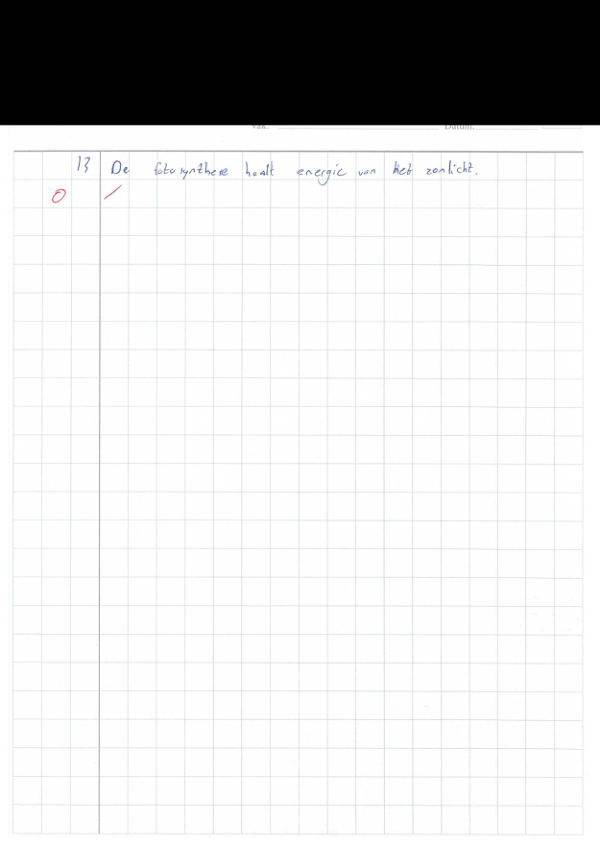 Vak: Datum:
13 De fotosynthese haalt energie van het zonlicht.
0 /